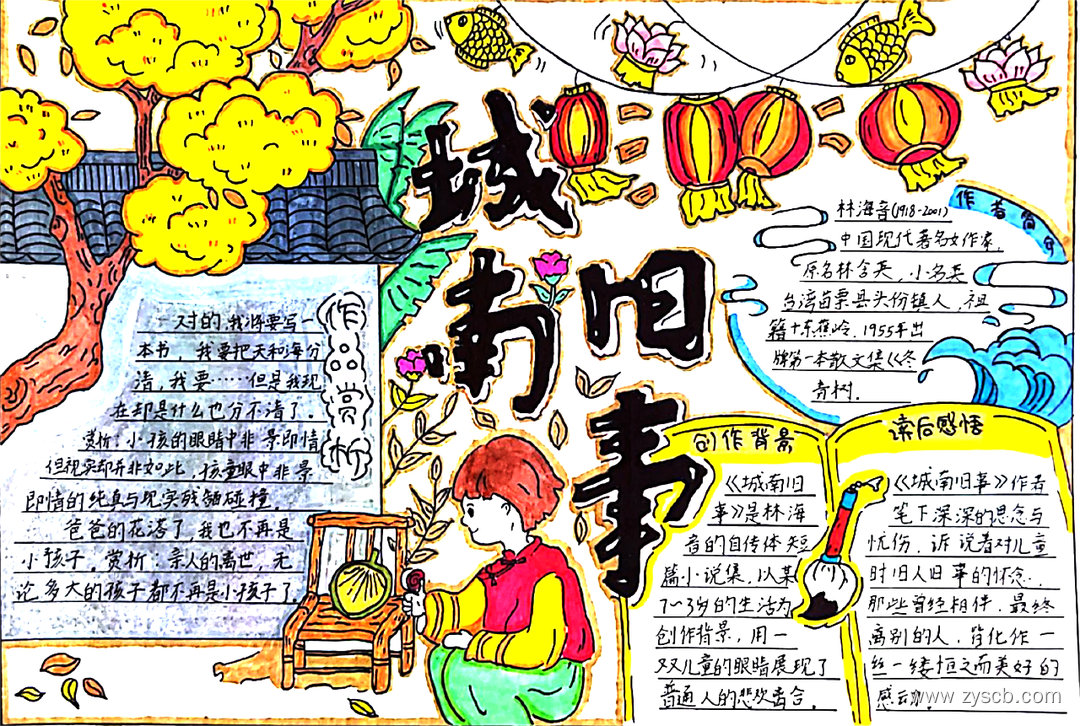 城南旧事
作品赏析
对的,我将要写一
本书,我要把天和海分
清,我要……但是我现
在却是什么也分不清了。
赏析:小孩的眼睛中非景即情
但现实却并非如此,孩童眼中非景
即情的纯真与现实残酷碰撞。
爸爸的花落了,我也不再是
小孩子。赏析:亲人的离世,无
论多大的孩子都不再是小孩子了
作者简介
林海音(1918-2001)
中国现代著名女作家,
原名林含英,小名英
台湾苗栗县头份镇人,祖
籍广东蕉岭。1955年出
版第一本散文集《冬
青树.
创作背景
《城南旧
事》是林海
音的自传体短
篇小说集,以某
7~3岁的生活为
创作背景,用一
双儿童的眼睛展现了
普通人的悲欢离合。
读后感悟
《城南旧事》作者
笔下深深的思念与
忧伤,诉说着对儿童
时旧人旧事的怀念..
那些曾经相伴,最终
离别的人,皆化作一
丝一缕恒久而美好的
感动.
www.zyscb.com